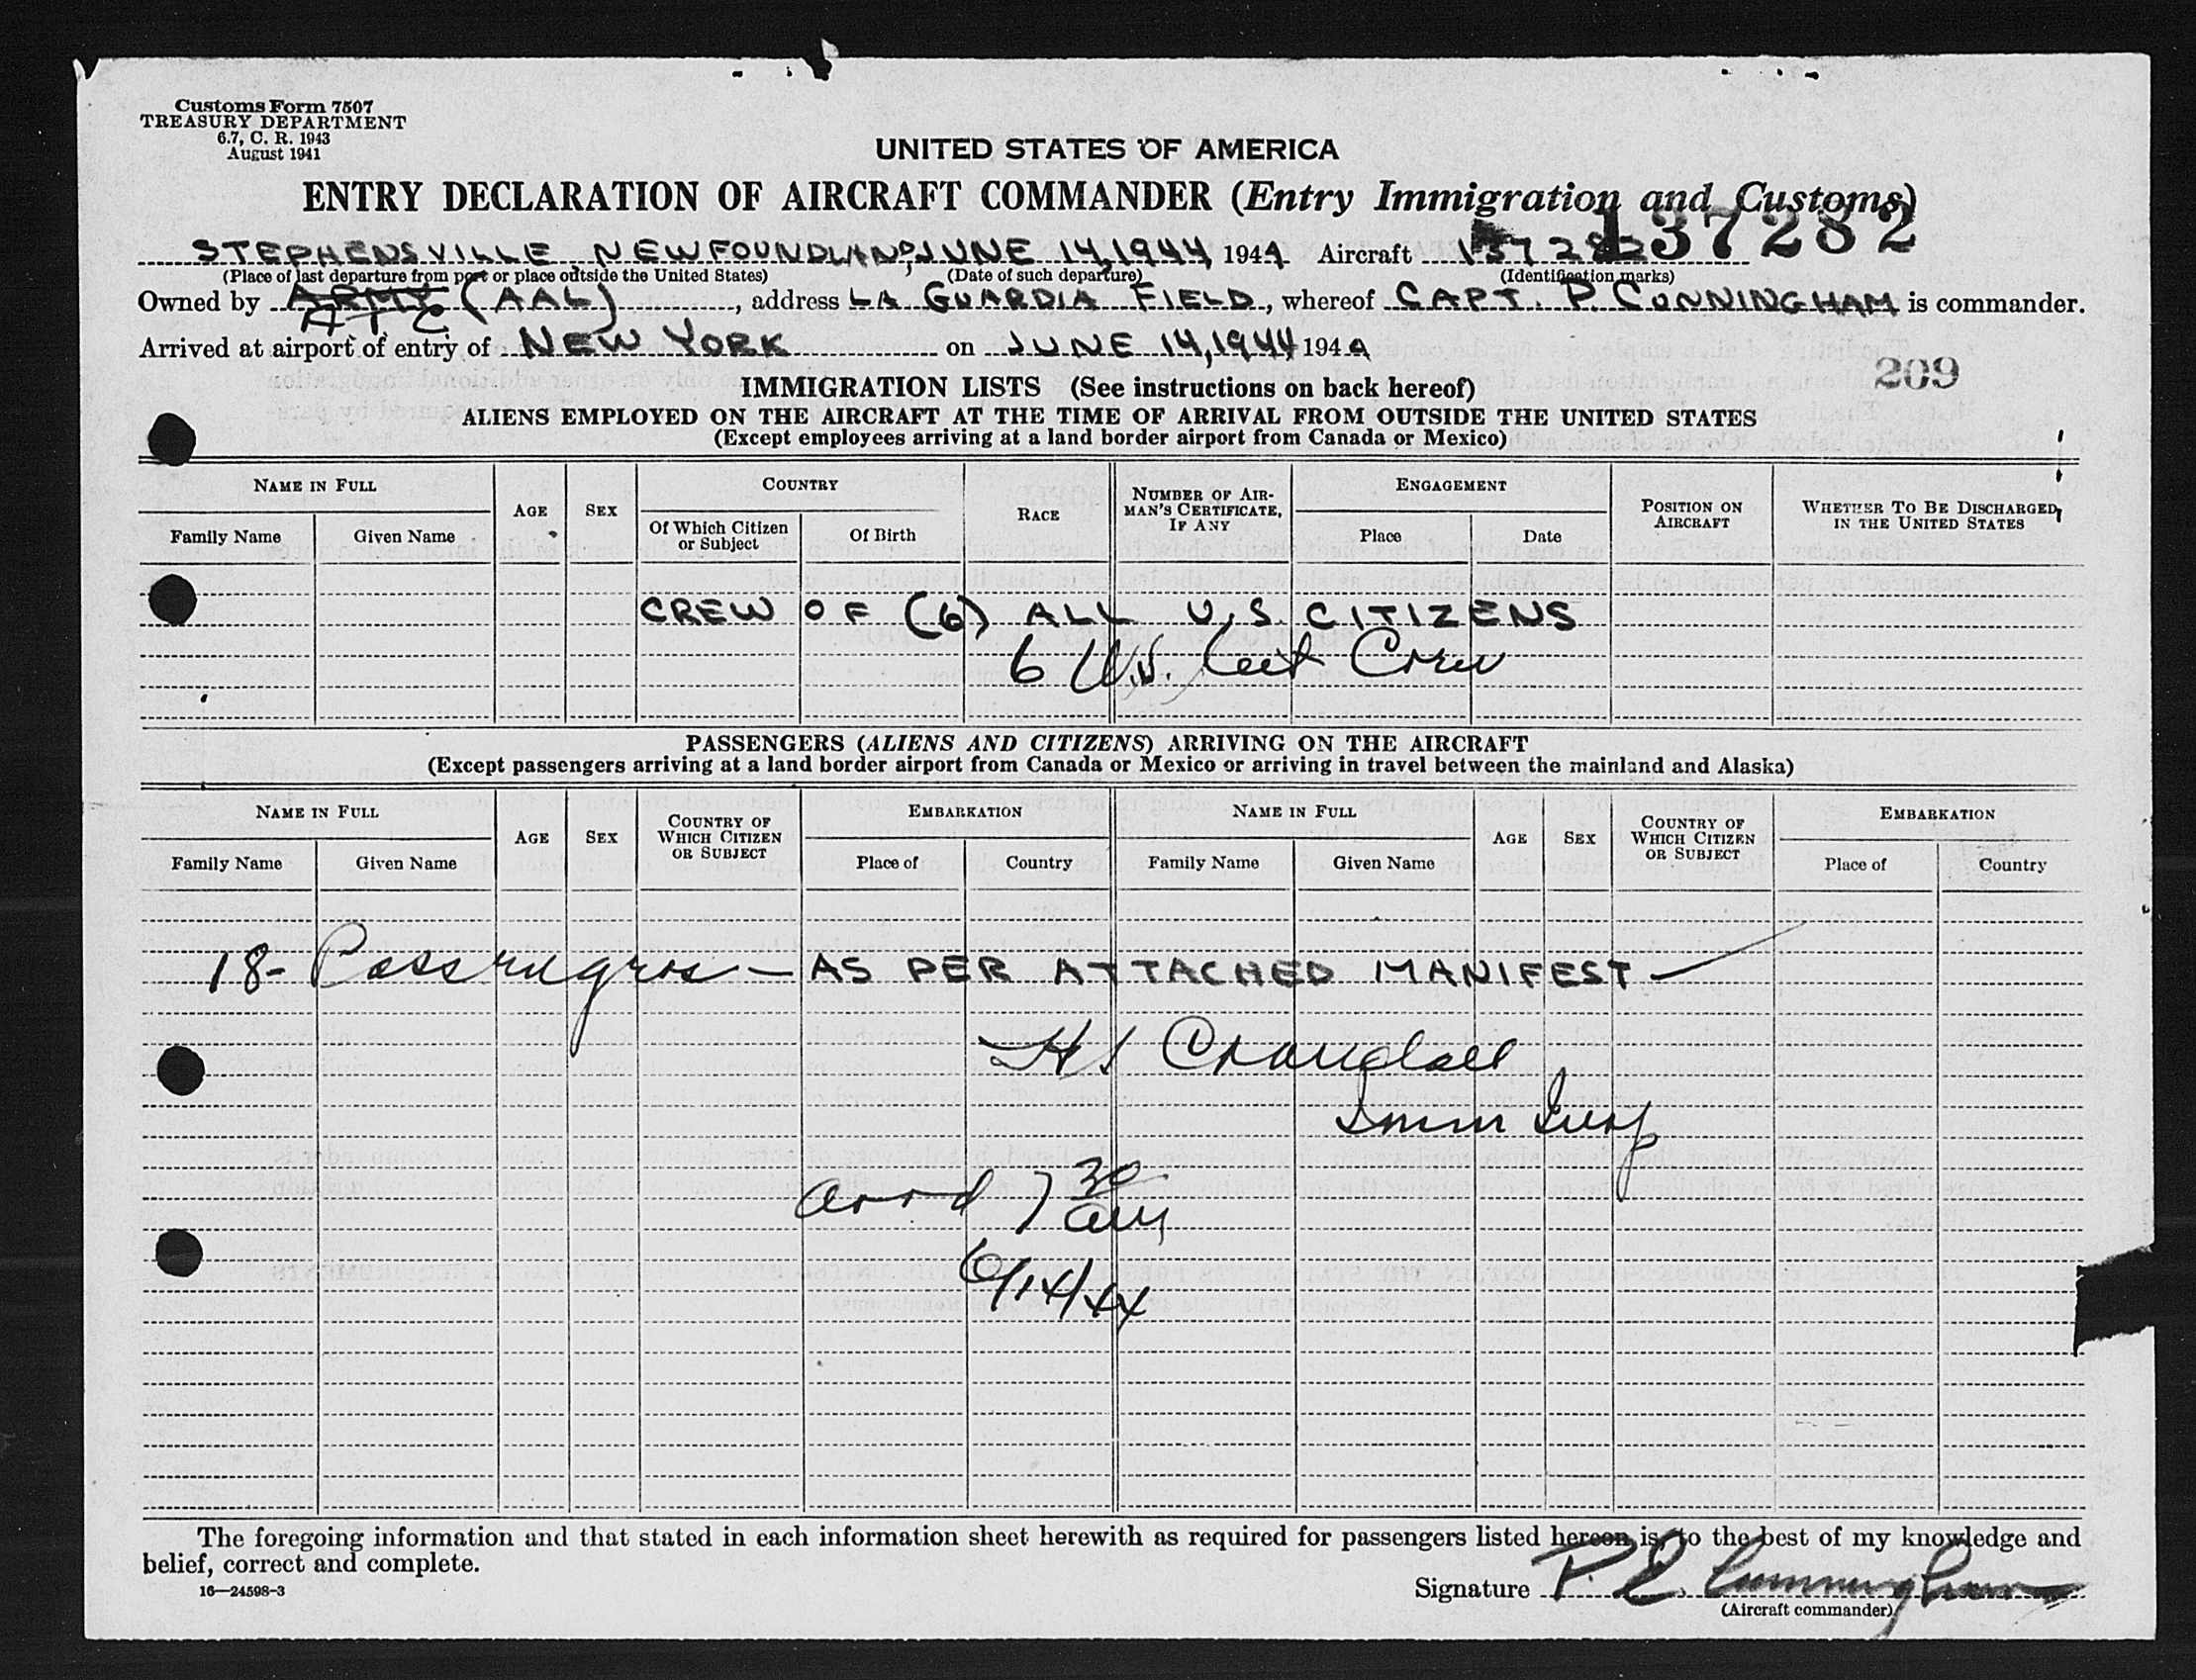 Customs Form 7507
TREASURY DEPARTMENT
6.7, C. R. 1943
August 1941
UNITED STATES OF AMERICA
ENTRY DECLARATION OF AIRCRAFT COMMANDER (Entry Immigration and Customs)
137282
STEPHENSVILLE NEWFOUNDLAND, JUNE 14, 1944, 1944 Aircraft 137282
(Place of last departure from port or place outside the United States) (Date of such departure) (Identification marks)
Owned by ARMY (AAL), address LA GUARDIA FIELD, whereof CAPT. P. CUNNINGHAM is commander.
ATC
Arrived at airport of entry of NEW YORK on JUNE 14, 1944 1944
209
IMMIGRATION LISTS (See instructions on back hereof)
ALIENS EMPLOYED ON THE AIRCRAFT AT THE TIME OF ARRIVAL FROM OUTSIDE THE UNITED STATES
(Except employees arriving at a land border airport from Canada or Mexico)
NAME IN FULL AGE SEX COUNTRY RACE NUMBER OF AIRMAN'S CERTIFICATE, IF ANY ENGAGEMENT POSITION ON AIRCRAFT WHETHER TO BE DISCHARGED IN THE UNITED STATES
Family Name Given Name Of Which Citizen or Subject Of Birth Place Date
CREW OF (6) ALL U.S. CITIZENS
6 U.S. Crew
PASSENGERS (ALIENS AND CITIZENS) ARRIVING ON THE AIRCRAFT
(Except passengers arriving at a land border airport from Canada or Mexico or arriving in travel between the mainland and Alaska)
NAME IN FULL AGE SEX COUNTRY OF WHICH CITIZEN OR SUBJECT EMBARKATION NAME IN FULL AGE SEX COUNTRY OF WHICH CITIZEN OR SUBJECT EMBARKATION
Family Name Given Name Place of Country Family Name Given Name Place of Country
18- Passengers - AS PER ATTACHED MANIFEST
Crandall
Imm Insp
arrd 7 30 am
6/14/44
The foregoing information and that stated in each information sheet herewith as required for passengers listed hereon is, to the best of my knowledge and
belief, correct and complete.
16—24598-3
Signature P. E. Cunningham
(Aircraft commander)